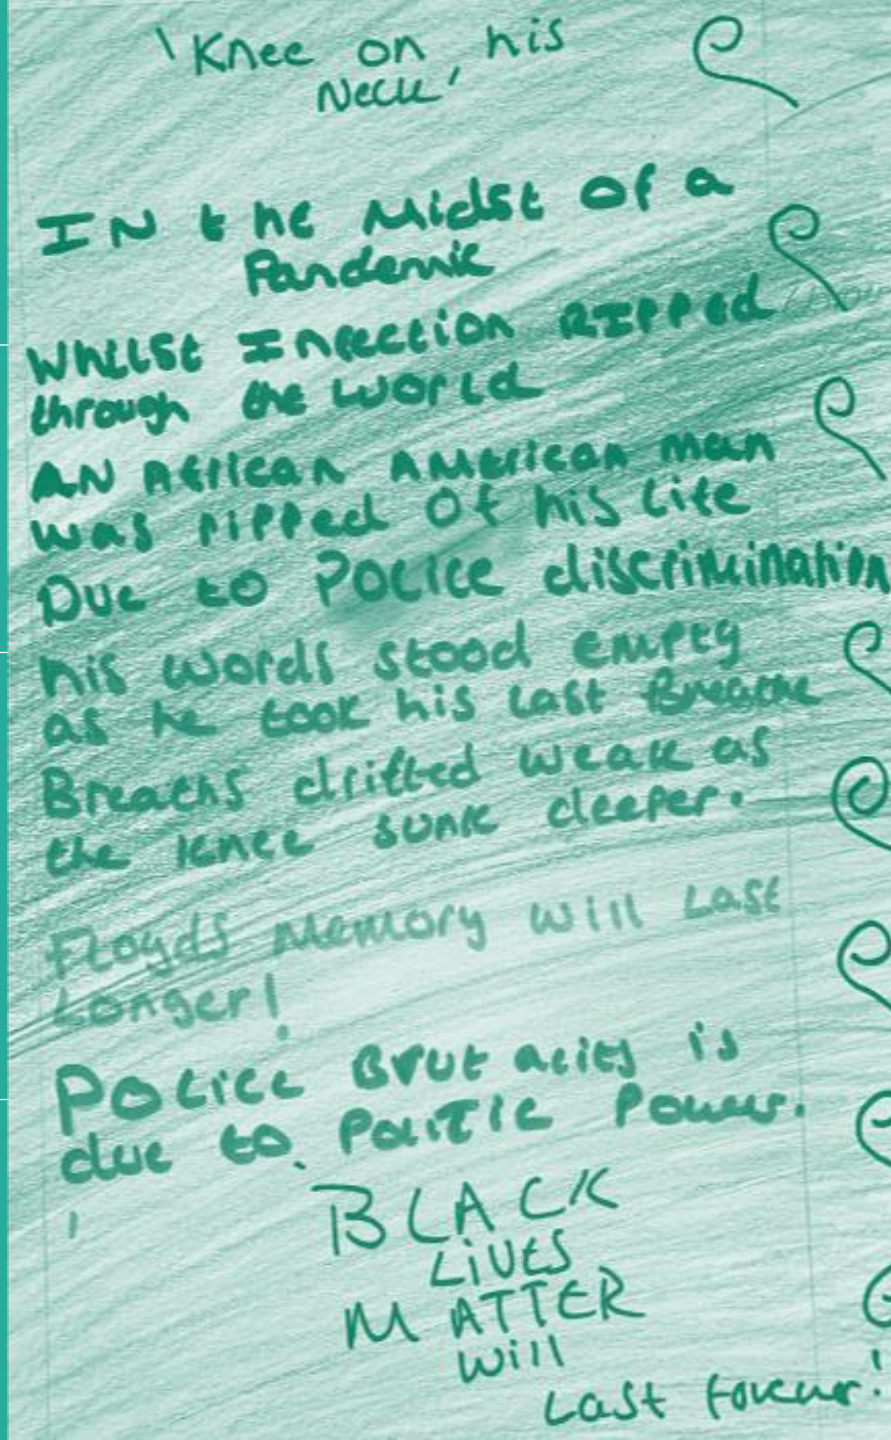 'Knee on his
Neck'
IN the Midst Of a
Pandemic
Whilst Infection RIPPed
through the World
AN African American man
was ripped Of his life
Due to Police discrimination
his words stood empty
as he took his last Breathe
Breaths drifted weak as
the knee sunk deeper.
Floyds Memory will Last
Longer!
Police Brutality is
due to Politic Power.
BLACK
LIVES
MATTER
Will
Last forever!